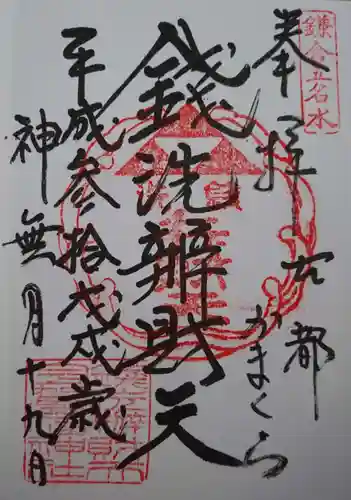 鎌倉五名水
奉拝 古都かまくら
銭洗辨財天
平成参拾戊戌歳
神無月十九日